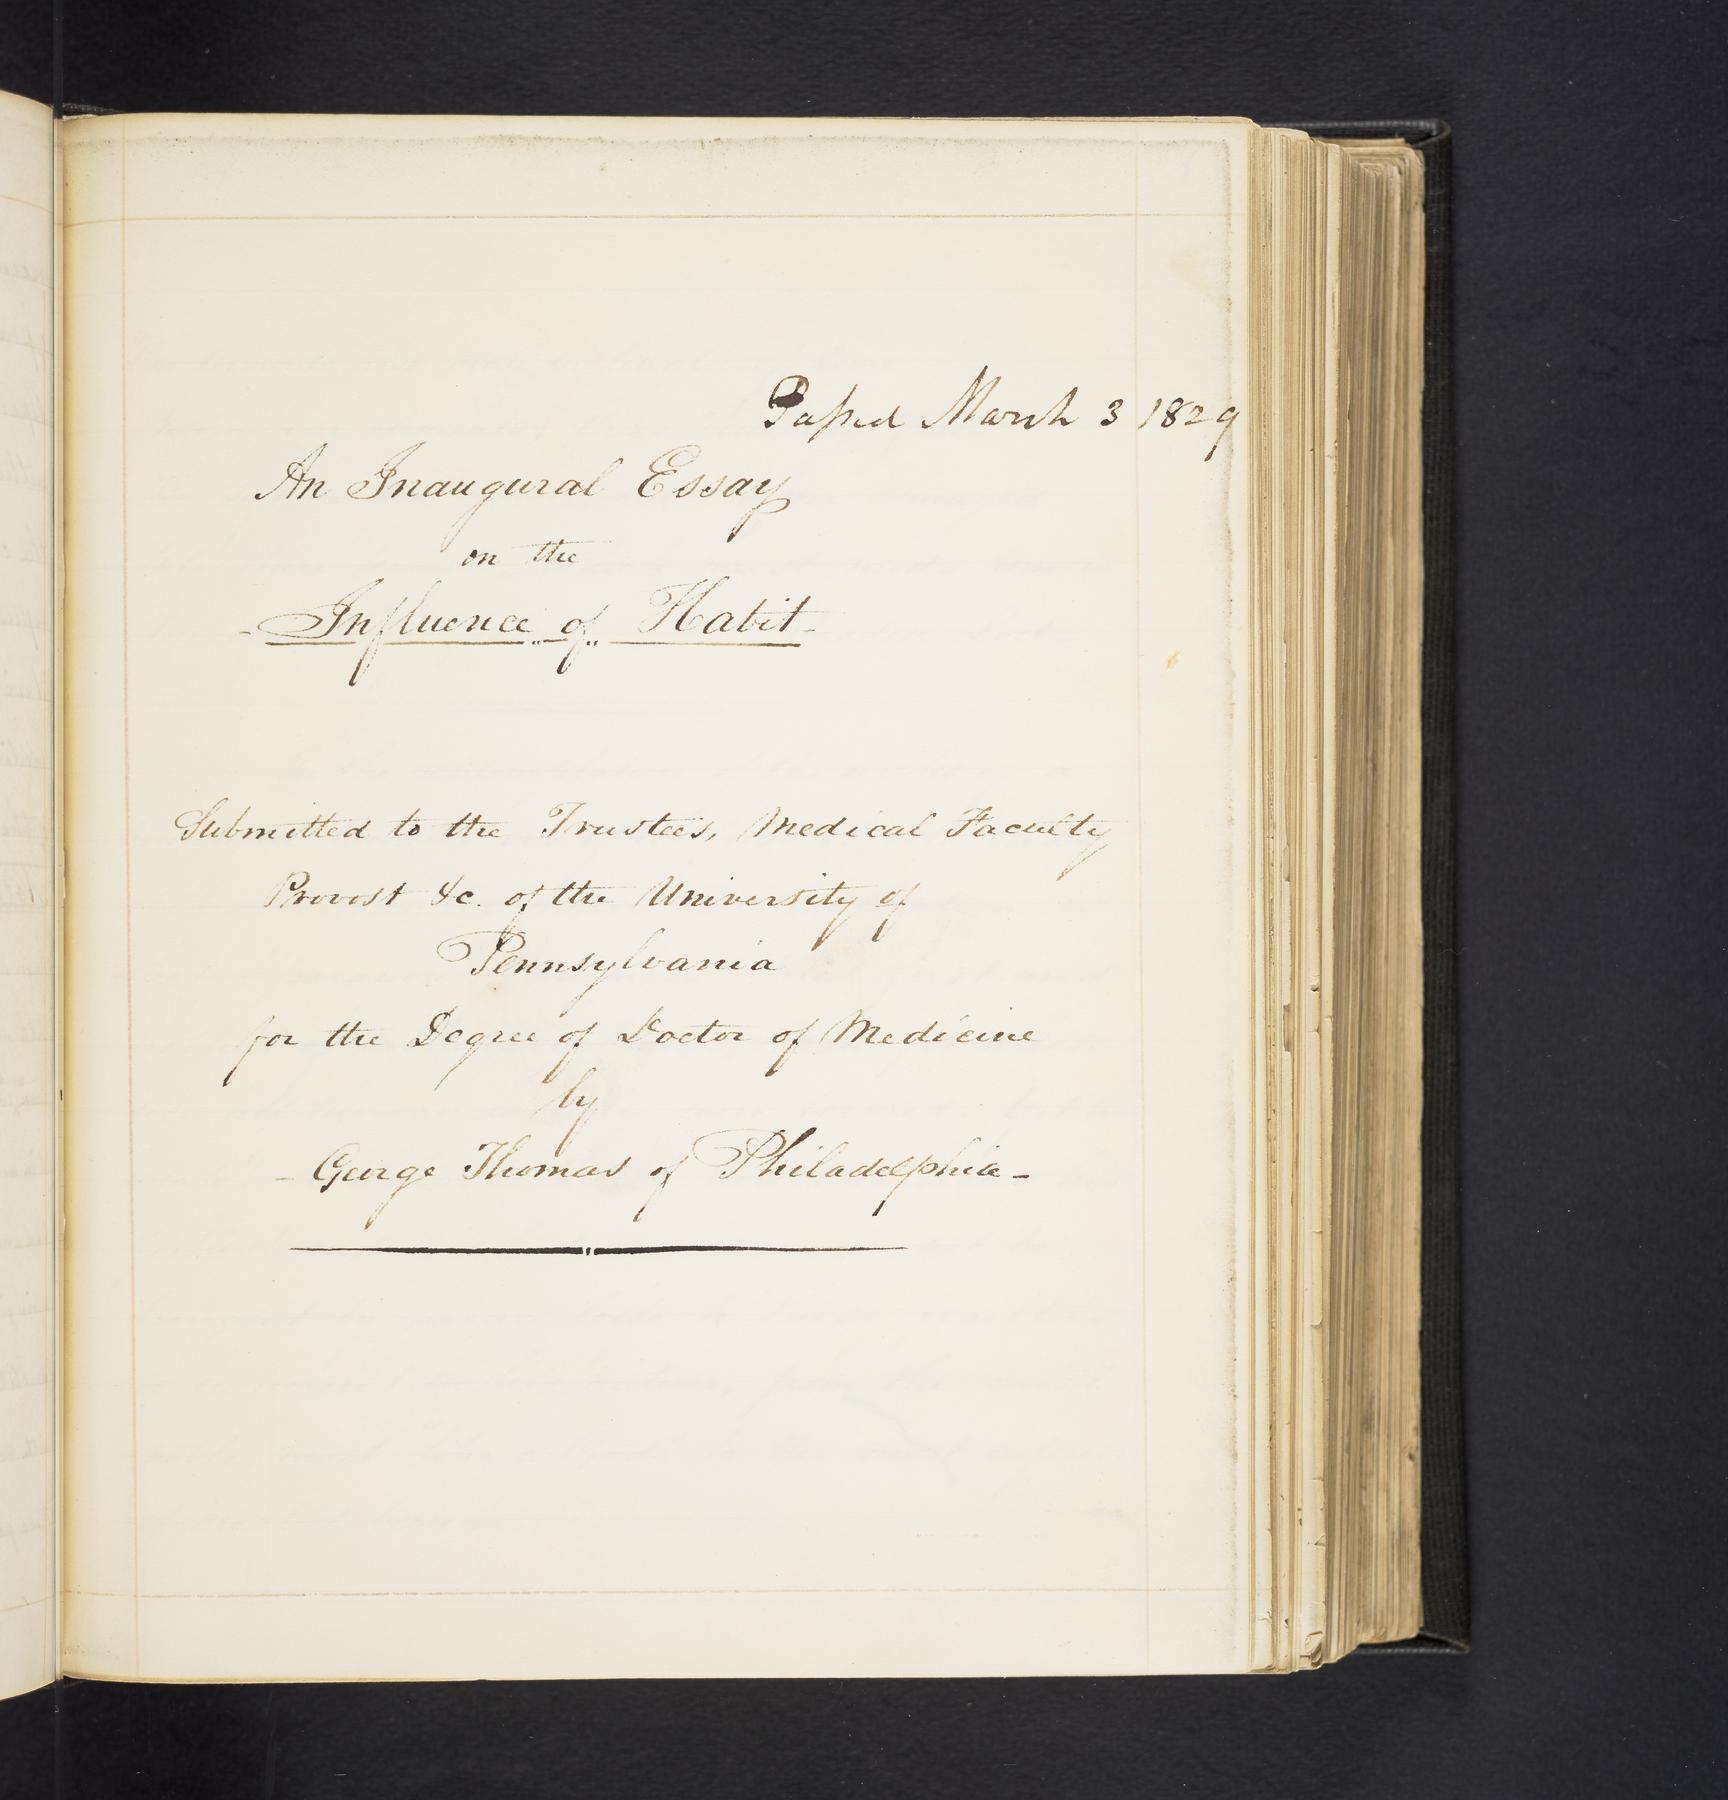 Passed March 3 1829
An Inaugural Essay
on the
- Influence of Habit -
Submitted to the Trustees, Medical Faculty
Provost &c. of the University of
Pennsylvania
for the Degree of Doctor of Medicine
by
- George Thomas of Philadelphia -